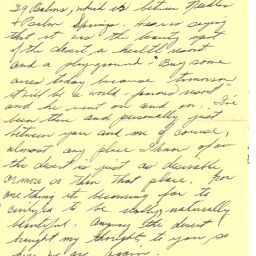 29 Palms, which is between Needles
+ Palm Springs. He was saying
that it was the beauty spot
of the desert, a health resort
and a playground. "Buy some
acres today because tomorrow
it will be a world famous resort"
and he went on and on. I've
been there and personally, just
between you and me of course,
almost any place I know of on
the desert is just as desirable
or more so than that place. For
one thing its becoming far to
civilized to be really, naturally
beautiful. Anyway the desert
brought my thoughts to you, so
here we are again.